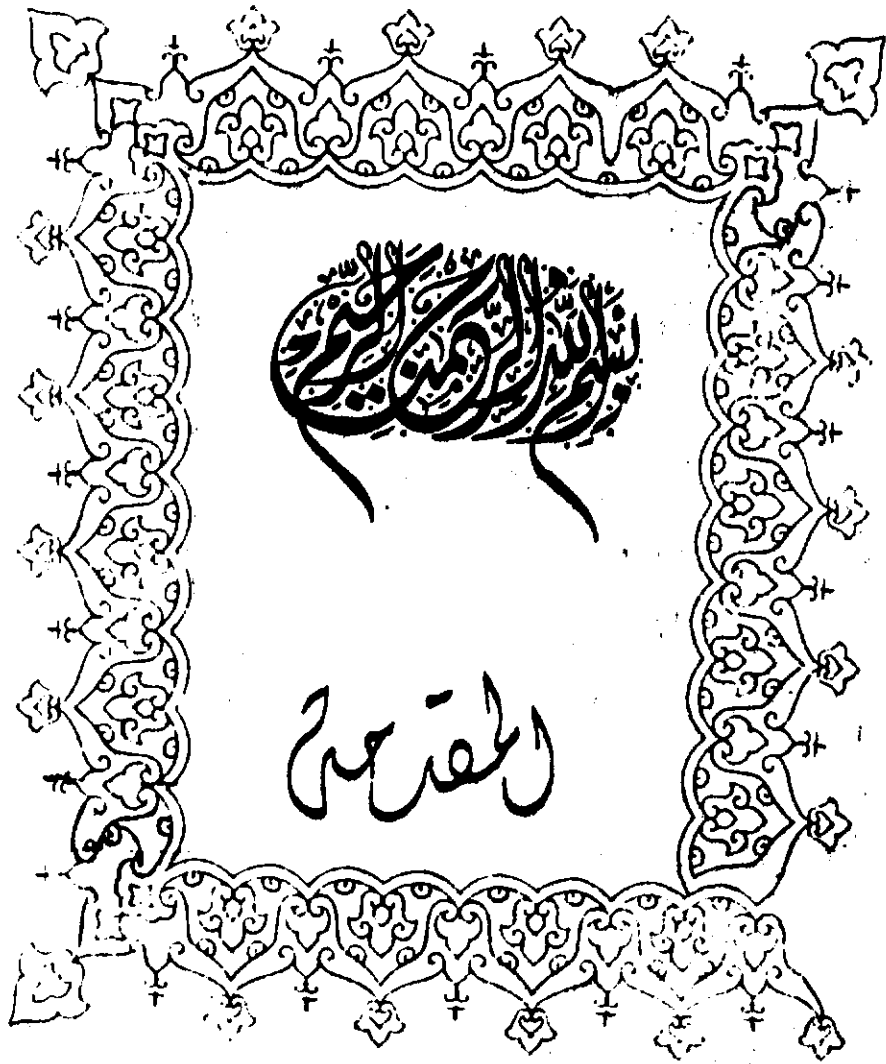 بسم الله الرحمن الرحيم
المقدمة